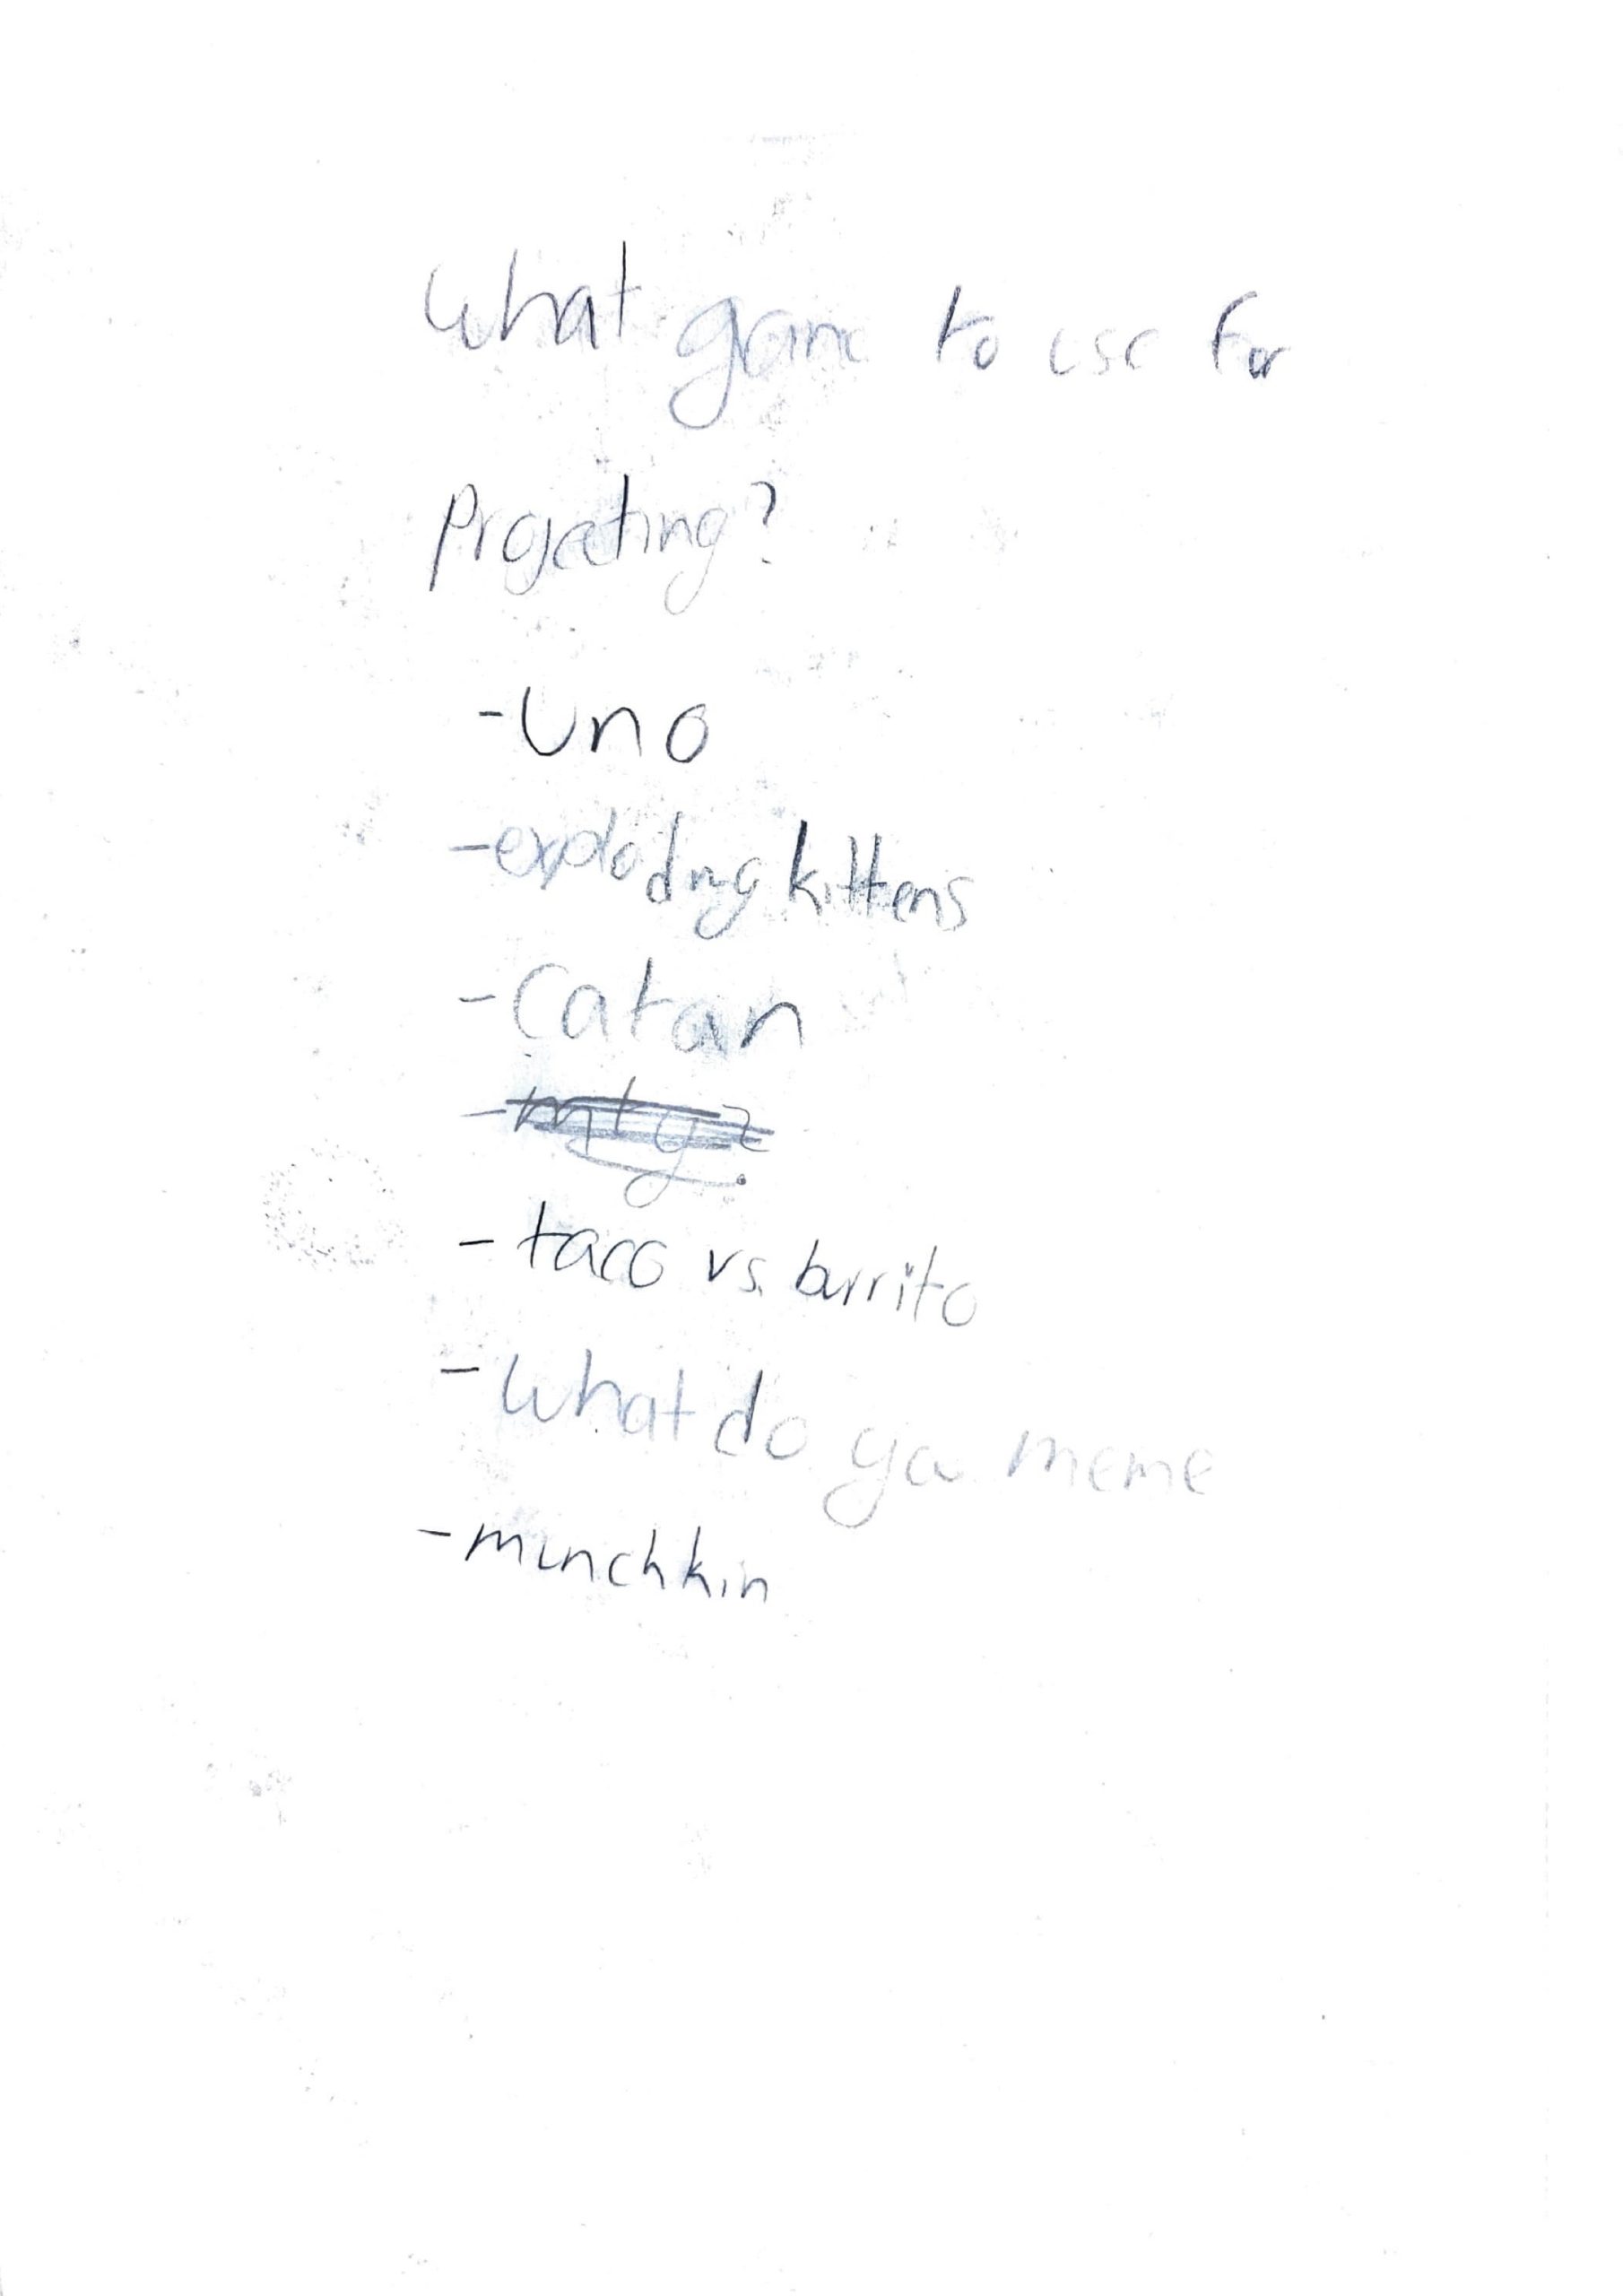 What game to use for
Projecting?
- Uno
- exploding kittens
- Catan
- mtg?
- taco vs. burrito
- What do ya meme
- munchkin